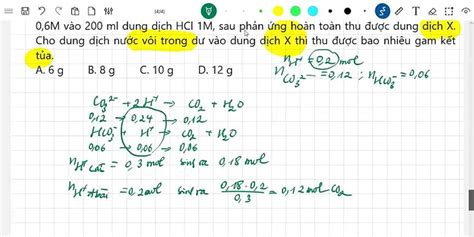 (4/4)
0,6M vào 200 ml dung dịch HCl 1M, sau phản ứng hoàn toàn thu được dung dịch X.
Cho dung dịch nước vôi trong dư vào dung dịch X thì thu được bao nhiêu gam kết
tủa.
A. 6 g B. 8 g C. 10 g D. 12 g
n_H⁺ = 0,2 mol
n_CO₃²⁻ = 0,12 ; n_HCO₃⁻ = 0,06
CO₃²⁻ + 2H⁺ → CO₂ + H₂O
0,12 → 0,24 → 0,12
HCO₃⁻ + H⁺ → CO₂ + H₂O
0,06 → 0,06 → 0,06
n_H⁺ cần = 0,3 mol sinh ra 0,18 mol
= 0,2 mol sinh ra 0,18.0,2/0,3 = 0,12 mol CO₂